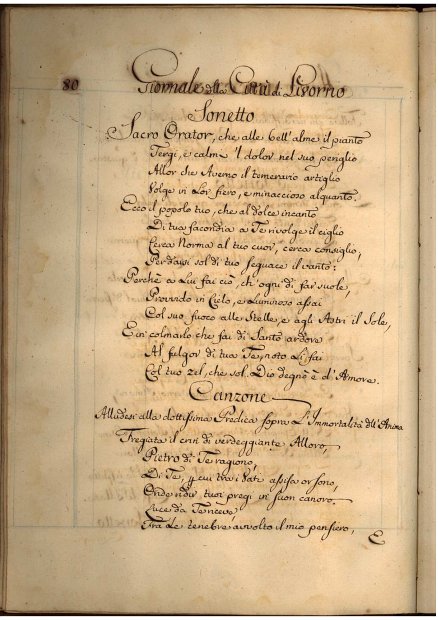 80 Giornale della Città di Livorno
Sonetto
Sacro Orator, che alle bell'alme il pianto
Tergi, e calme 'l dolor nel suo periglio
Allor che Averno il temerario artiglio
Volge in Lor fiero, e minaccioso alquanto.
Ecco il popolo tuo, che al dolce incanto
Di tua facondia a Te rivolge il ciglio
Cerca Norma al tuo cuor, cerca consiglio,
Per darsi sol di tuo seguace il vanto:
Perchè a Lui fai ciò, ch'ogni dì far suole,
Provvido in Cielo, e Luminoso assai
Col suo fuoco alle Stelle, e agli Astri il Sole,
E in colmarlo che fai di Santo ardore
Al fulgor di tua Te, noto Li fai
Col tuo zel, che sol Dio degno è d'Amore.
Canzone
Alludesi alla dottissima Predica sopra L'Immortalità dell'Anima
Fregiata il crin di verdeggiante Alloro,
Pietro di Te ragiono,
Di Te, y cui tra i Vati assisa or sono,
Onde ridir tuoi pregi in suon canoro.
Luce da Te riceve
Fra Le tenebre avvolto il mio pensiero,
E